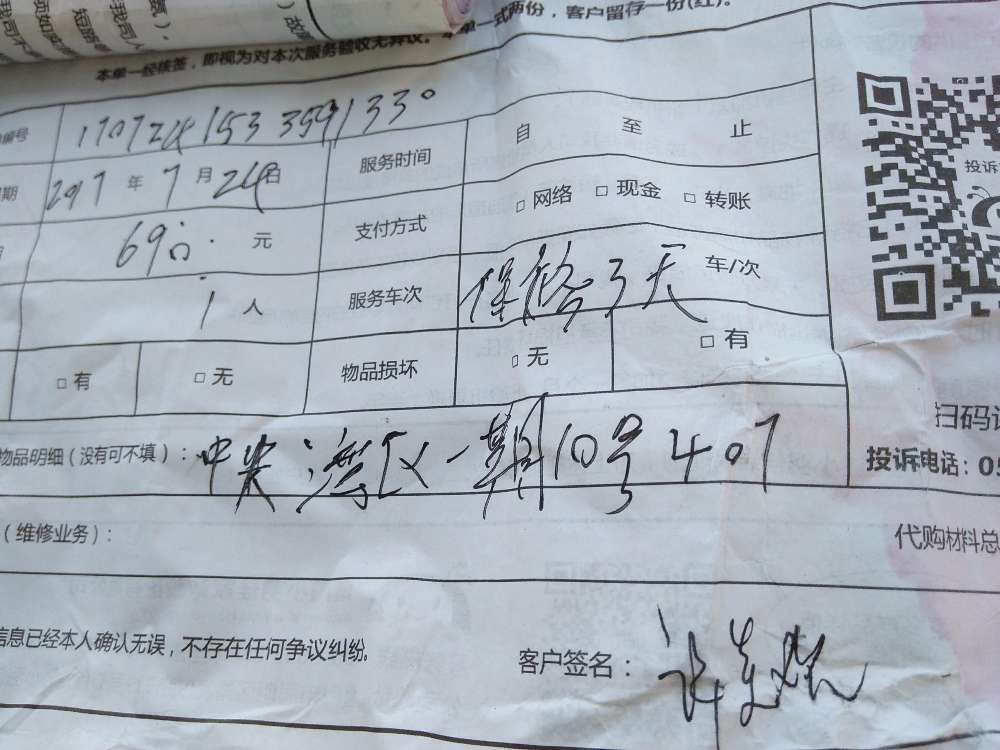 式两份，客户留存一份(红)。
本单一经核签，即视为对本次服务验收无异议。
编号 1707241533591330 服务时间 自 至 止
期 2017 年 7 月 24 日 支付方式 □ 网络 □ 现金 □ 转账
690. 元
1 人 服务车次 保修3天 车/次
□ 有 □ 无 物品损坏 □ 无 □ 有
物品明细（没有可不填）： 中央湾区一期10号407
（维修业务）： 代购材料总
信息已经本人确认无误，不存在任何争议纠纷。
客户签名：
投诉
扫码
投诉电话：05